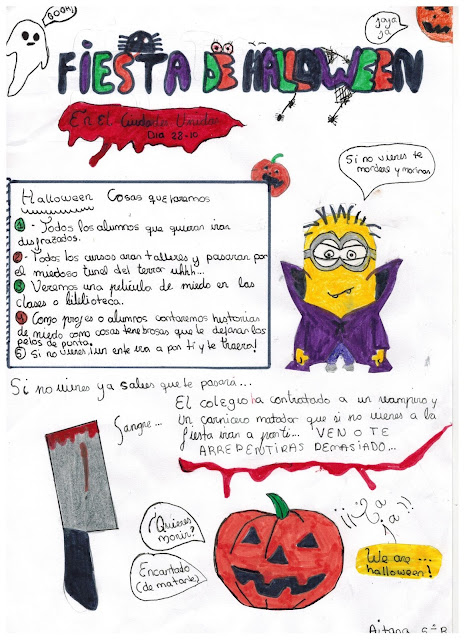 BOOH!
jaja
ja
FIESTA DE HALLOWEEN
En El Ciudades Unidas
Dia 28-10
Si no vienes te
morderé y moriras
Halloween Cosas que haremos
1 - Todos los alumnos que quieran iran
disfrazados.
2 - Todos los cursos aran talleres y pasaran por
el miedoso tunel del terror uhhh...
3 Veremos una película de miedo en las
clases o biblioteca.
4 Como profes o alumnos contaremos historias
de miedo como cosas tenebrosas que te dejaran los
pelos de punta.
5 Si no vienes ¡un ente ira a por ti y te traera!
Si no vienes ya sabes que te pasará...
El colegio ha contratado a un vampiro y
un carnicero matador que si no vienes a la
fiesta iran a por ti... VEN O TE
ARREPENTIRAS DEMASIADO...
Sangre...
¿Quieres
morir?
Encantado
(de matarte)
We are ...
halloween!
Aitana 6ºB